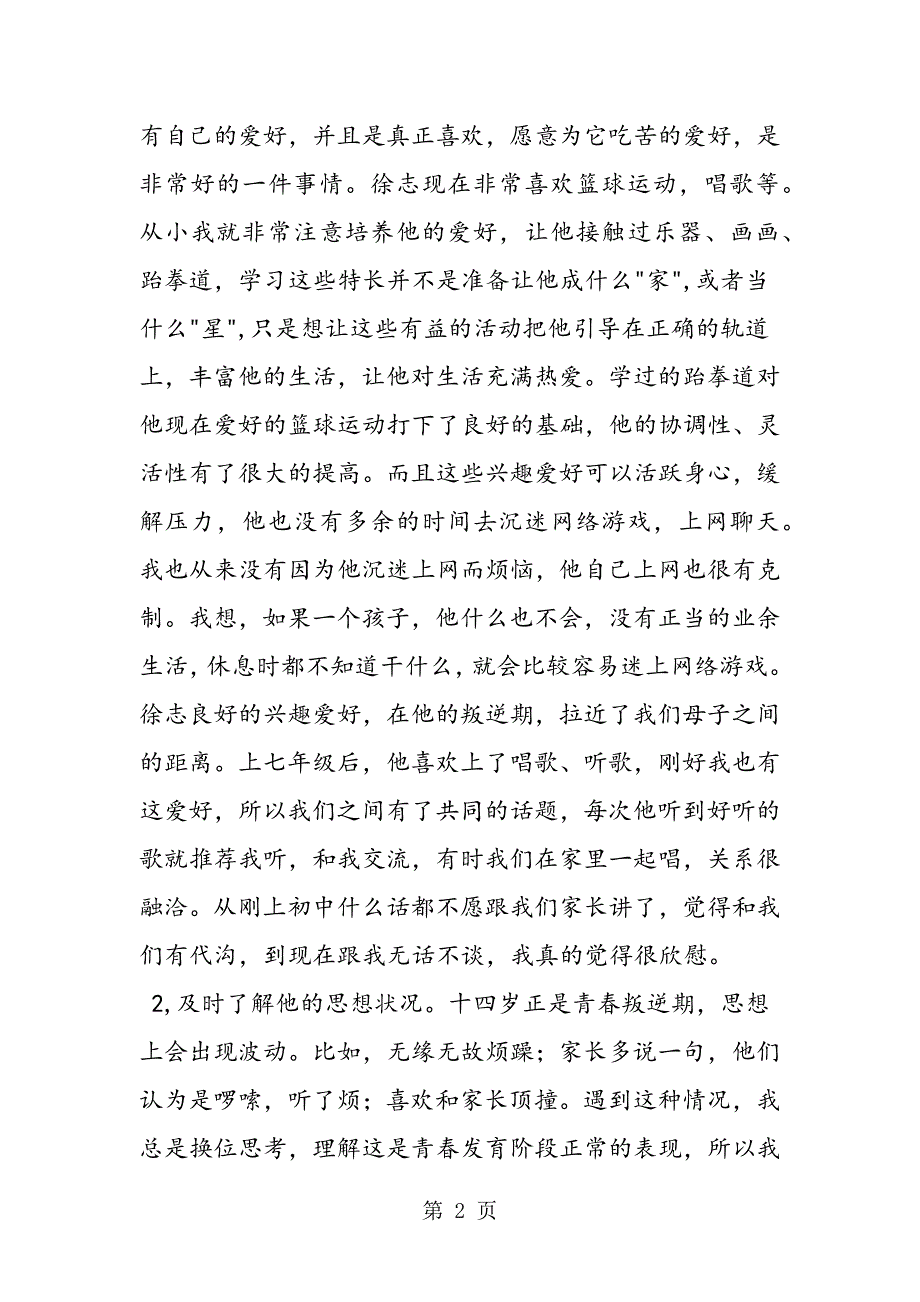 有自己的爱好，并且是真正喜欢，愿意为它吃苦的爱好，是
非常好的一件事情。徐志现在非常喜欢篮球运动，唱歌等。
从小我就非常注意培养他的爱好，让他接触过乐器、画画、
跆拳道，学习这些特长并不是准备让他成什么"家",或者当
什么"星",只是想让这些有益的活动把他引导在正确的轨道
上，丰富他的生活，让他对生活充满热爱。学过的跆拳道对
他现在爱好的篮球运动打下了良好的基础，他的协调性、灵
活性有了很大的提高。而且这些兴趣爱好可以活跃身心，缓
解压力，他也没有多余的时间去沉迷网络游戏，上网聊天。
我也从来没有因为他沉迷上网而烦恼，他自己上网也很有克
制。我想，如果一个孩子，他什么也不会，没有正当的业余
生活,休息时都不知道干什么,就会比较容易迷上网络游戏。
徐志良好的兴趣爱好，在他的叛逆期，拉近了我们母子之间
的距离。上七年级后，他喜欢上了唱歌、听歌，刚好我也有
这爱好，所以我们之间有了共同的话题，每次他听到好听的
歌就推荐我听，和我交流，有时我们在家里一起唱，关系很
融洽。从刚上初中什么话都不愿跟我们家长讲了，觉得和我
们有代沟，到现在跟我无话不谈，我真的觉得很欣慰。
2,及时了解他的思想状况。十四岁正是青春叛逆期，思想
上会出现波动。比如，无缘无故烦躁；家长多说一句，他们
认为是啰嗦，听了烦；喜欢和家长顶撞。遇到这种情况，我
总是换位思考，理解这是青春发育阶段正常的表现，所以我
第 2 页